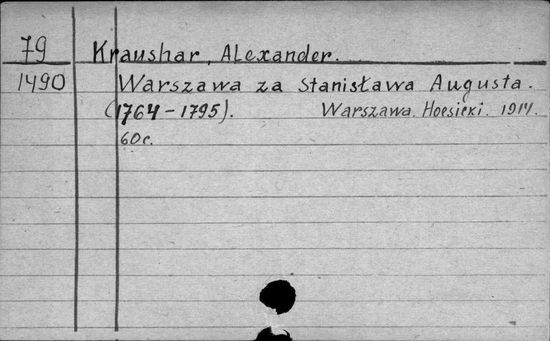 79 Kraushar, Alexander.
1490 Warszawa za Stanisława Augusta.
(1764-1795). Warszawa. Hoesicki. 1914.
60c.